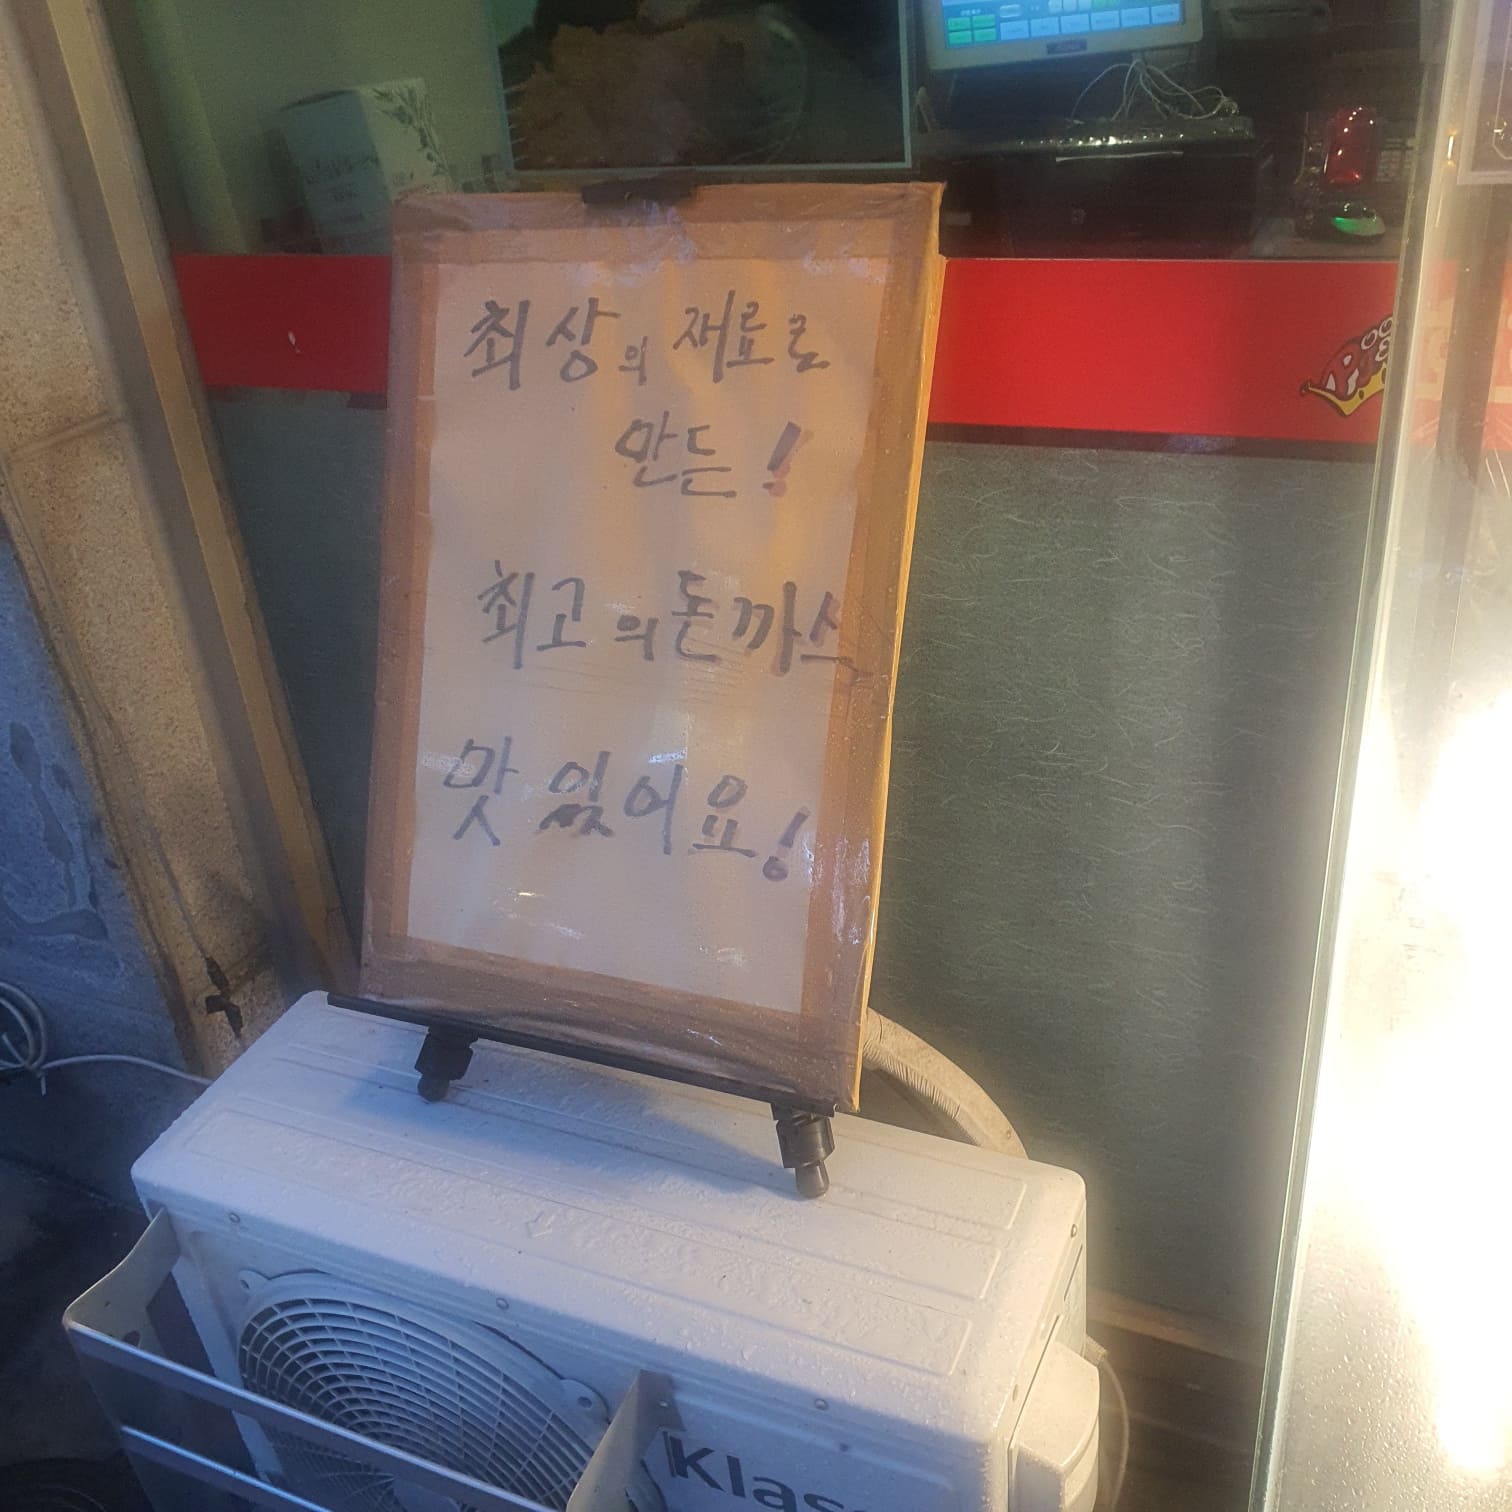 최상의 재료로
만든!
최고의 돈까스
맛있어요!
Klas